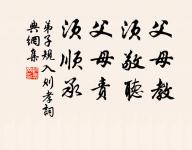 父母教
須敬聽
父母責
須順承
弟子規入則孝詞
典網集